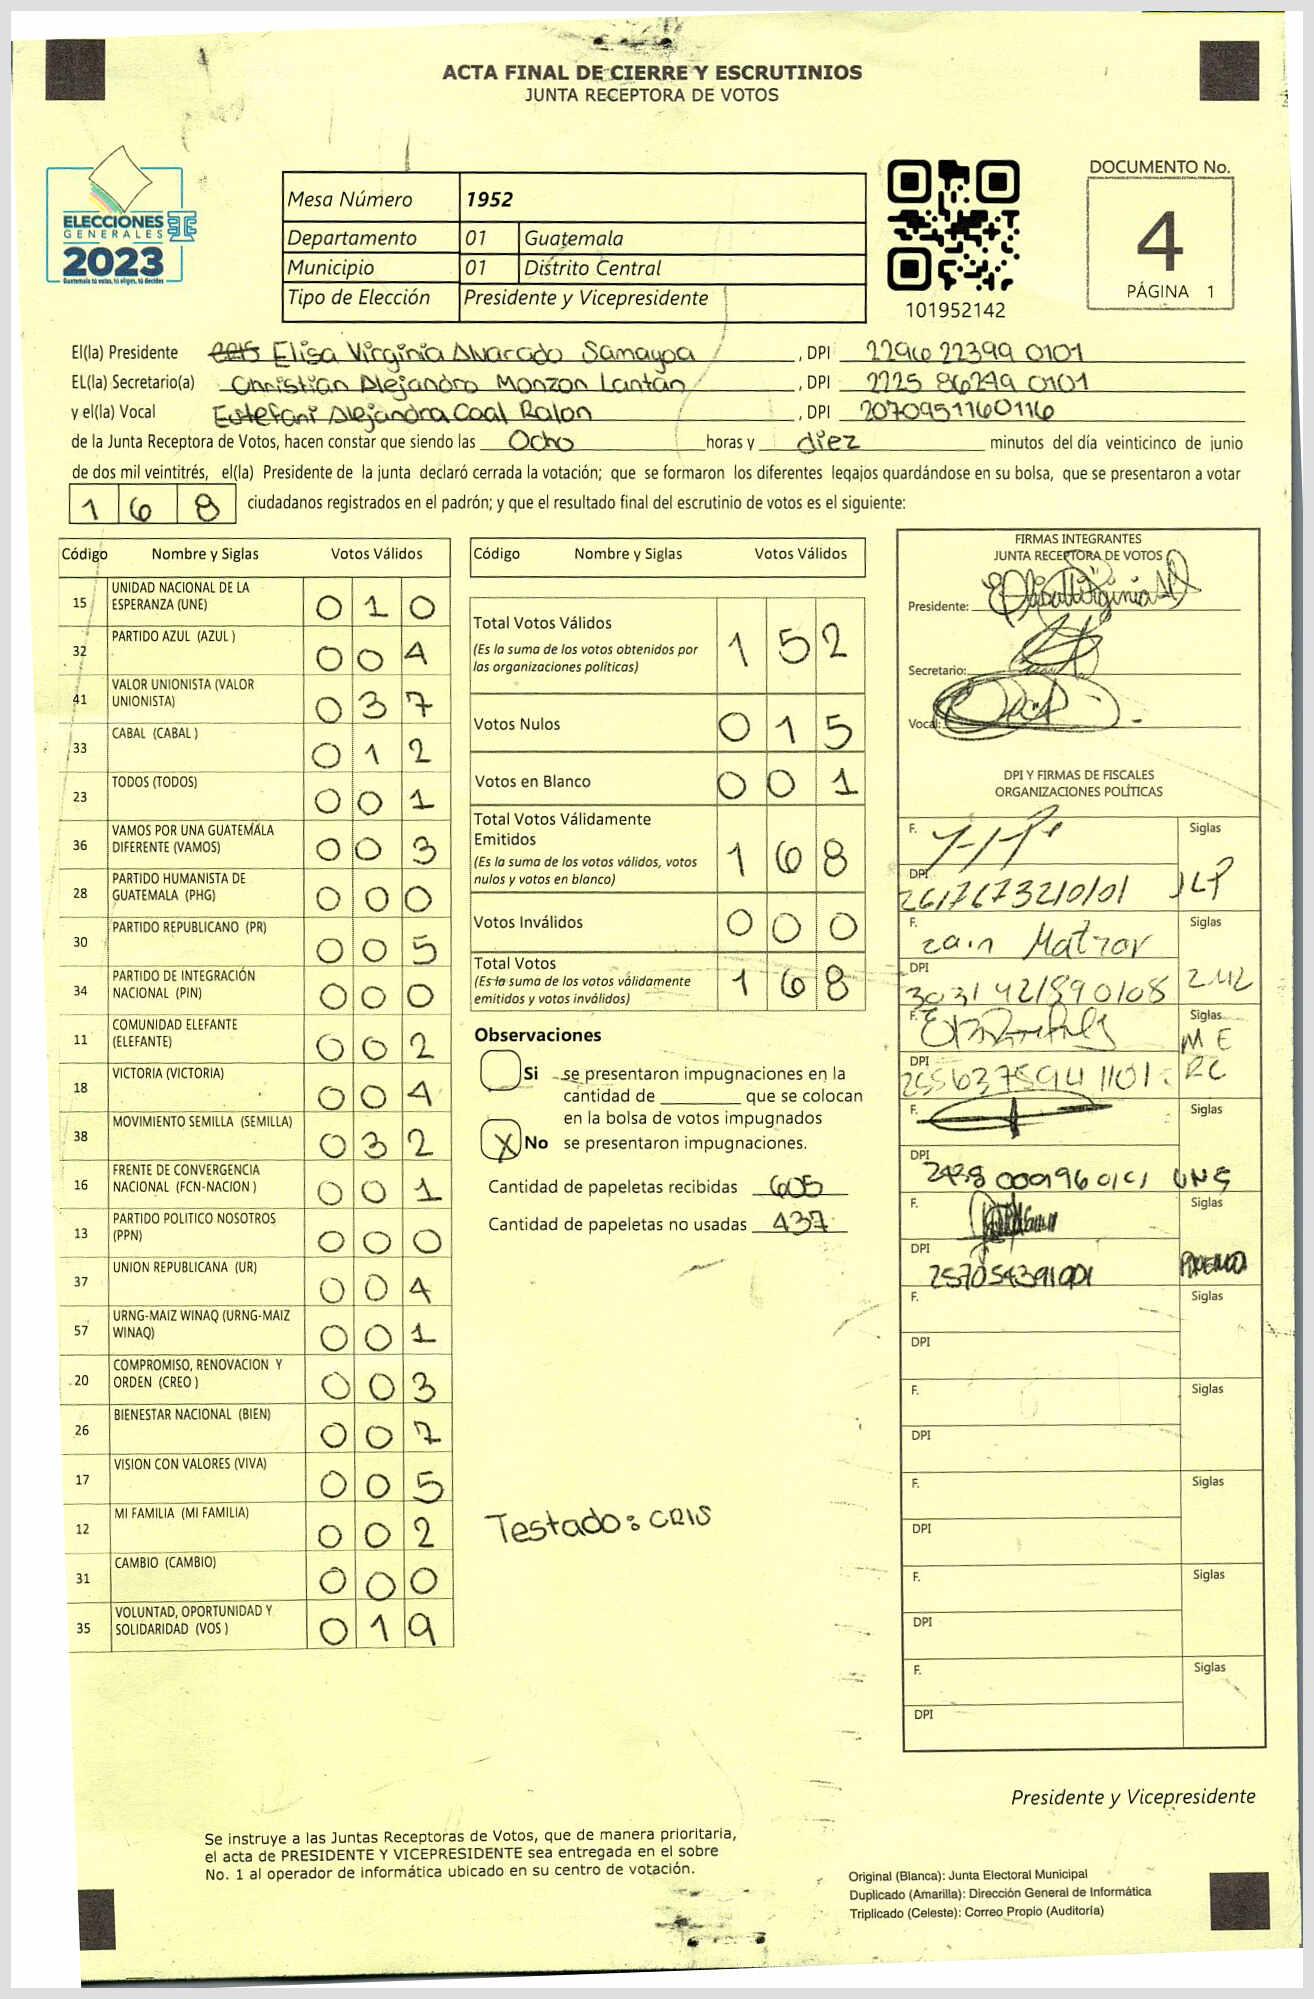 ACTA FINAL DE CIERRE Y ESCRUTINIOS
JUNTA RECEPTORA DE VOTOS
ELECCIONES
GENERALES
2023
Guatemala tú votas, tú eliges, tú decides
Mesa Número 1952
Departamento 01 Guatemala
Municipio 01 Distrito Central
Tipo de Elección Presidente y Vicepresidente
101952142
DOCUMENTO No.
4
PÁGINA 1
El(la) Presidente Elisa Virginia Alvarado Samayoa , DPI 2296 22399 0101
EL(la) Secretario(a) Christian Alejandro Monzon Lantan , DPI 2225 86249 0101
y el(la) Vocal Estefani Alejandra Coal Ralon , DPI 2070951160116
de la Junta Receptora de Votos, hacen constar que siendo las Ocho horas y diez minutos del día veinticinco de junio
de dos mil veintitrés, el(la) Presidente de la junta declaró cerrada la votación; que se formaron los diferentes legajos guardándose en su bolsa, que se presentaron a votar
168 ciudadanos registrados en el padrón; y que el resultado final del escrutinio de votos es el siguiente:
Código Nombre y Siglas Votos Válidos
15 UNIDAD NACIONAL DE LA ESPERANZA (UNE) 010
32 PARTIDO AZUL (AZUL ) 004
41 VALOR UNIONISTA (VALOR UNIONISTA) 037
33 CABAL (CABAL ) 012
23 TODOS (TODOS) 001
36 VAMOS POR UNA GUATEMALA DIFERENTE (VAMOS) 003
28 PARTIDO HUMANISTA DE GUATEMALA (PHG) 000
30 PARTIDO REPUBLICANO (PR) 005
34 PARTIDO DE INTEGRACIÓN NACIONAL (PIN) 000
11 COMUNIDAD ELEFANTE (ELEFANTE) 002
18 VICTORIA (VICTORIA) 004
38 MOVIMIENTO SEMILLA (SEMILLA) 032
16 FRENTE DE CONVERGENCIA NACIONAL (FCN-NACION ) 001
13 PARTIDO POLITICO NOSOTROS (PPN) 000
37 UNION REPUBLICANA (UR) 004
57 URNG-MAIZ WINAQ (URNG-MAIZ WINAQ) 001
20 COMPROMISO, RENOVACION Y ORDEN (CREO ) 003
26 BIENESTAR NACIONAL (BIEN) 007
17 VISION CON VALORES (VIVA) 005
12 MI FAMILIA (MI FAMILIA) 002
31 CAMBIO (CAMBIO) 000
35 VOLUNTAD, OPORTUNIDAD Y SOLIDARIDAD (VOS ) 019
Código Nombre y Siglas Votos Válidos
Total Votos Válidos 152
(Es la suma de los votos obtenidos por
las organizaciones políticas)
Votos Nulos 015
Votos en Blanco 001
Total Votos Válidamente
Emitidos 168
(Es la suma de los votos válidos, votos
nulos y votos en blanco)
Votos Inválidos 000
Total Votos 168
(Es la suma de los votos válidamente
emitidos y votos inválidos)
Observaciones
Si se presentaron impugnaciones en la
cantidad de ________ que se colocan
en la bolsa de votos impugnados
X No se presentaron impugnaciones.
Cantidad de papeletas recibidas 605
Cantidad de papeletas no usadas 437
Testado: CRIS
FIRMAS INTEGRANTES
JUNTA RECEPTORA DE VOTOS
Presidente:
Secretario:
Vocal:
DPI Y FIRMAS DE FISCALES
ORGANIZACIONES POLÍTICAS
F. Siglas
DPI
F. Siglas
DPI 3031 421890108
F. Siglas
DPI
F. Siglas
DPI
F. Siglas
DPI
F. Siglas
DPI
F. Siglas
DPI
F. Siglas
DPI
F. Siglas
DPI
F. Siglas
DPI
Presidente y Vicepresidente
Se instruye a las Juntas Receptoras de Votos, que de manera prioritaria,
el acta de PRESIDENTE Y VICEPRESIDENTE sea entregada en el sobre
No. 1 al operador de informática ubicado en su centro de votación.
Original (Blanca): Junta Electoral Municipal
Duplicado (Amarilla): Dirección General de Informática
Triplicado (Celeste): Correo Propio (Auditoría)